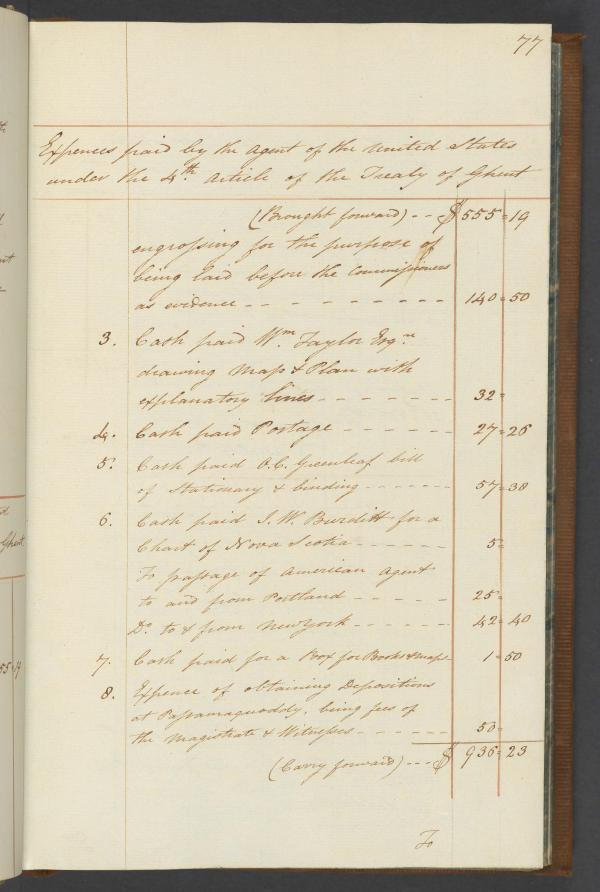 77
Expences paid by the agent of the United States
under the 4th. article of the Treaty of Ghent
(Brought forward) - - $ 555 = 19
engrossing for the purpose of
being laid before the Commissioners
as evidence - - - - - - - - - 140 = 50
3. Cash paid Wm. Taylor Esqr.
drawing Map & Plan with
explanatory lines - - - - - - - 32 =
4. Cash paid Postage - - - - - - 27 = 26
5. Cash paid O.C. Greenleaf bill
of Stationary & binding - - - - - - 57 = 38
6. Cash paid J. W. Burditt for a
Chart of Nova Scotia - - - - - - 5 =
To passage of American Agent
to and from Portland - - - - - 25 =
Do. to & from New York - - - - - 42 = 40
7. Cash paid for a Box for Books & maps - 1 = 50
8. Expence of obtaining Depositions
at Passamaquoddy, being fees of
the Magistrate & Witnesses - - - - - - 50 =
(Carry forward) - - - $ 936 = 23
To
Ghent
55 = 19